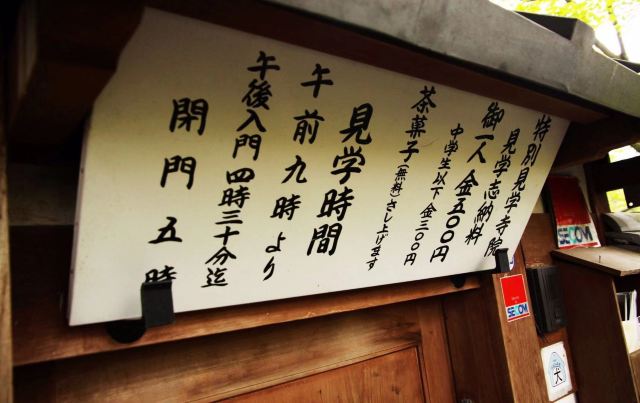 特別見学寺院
見学志納料
御一人 金五〇〇円
中学生以下 金三〇〇円
茶菓子(無料)さし上げます
見学時間
午前九時より
午後入門四時三十分迄
閉門五時
SECOM
SECOM